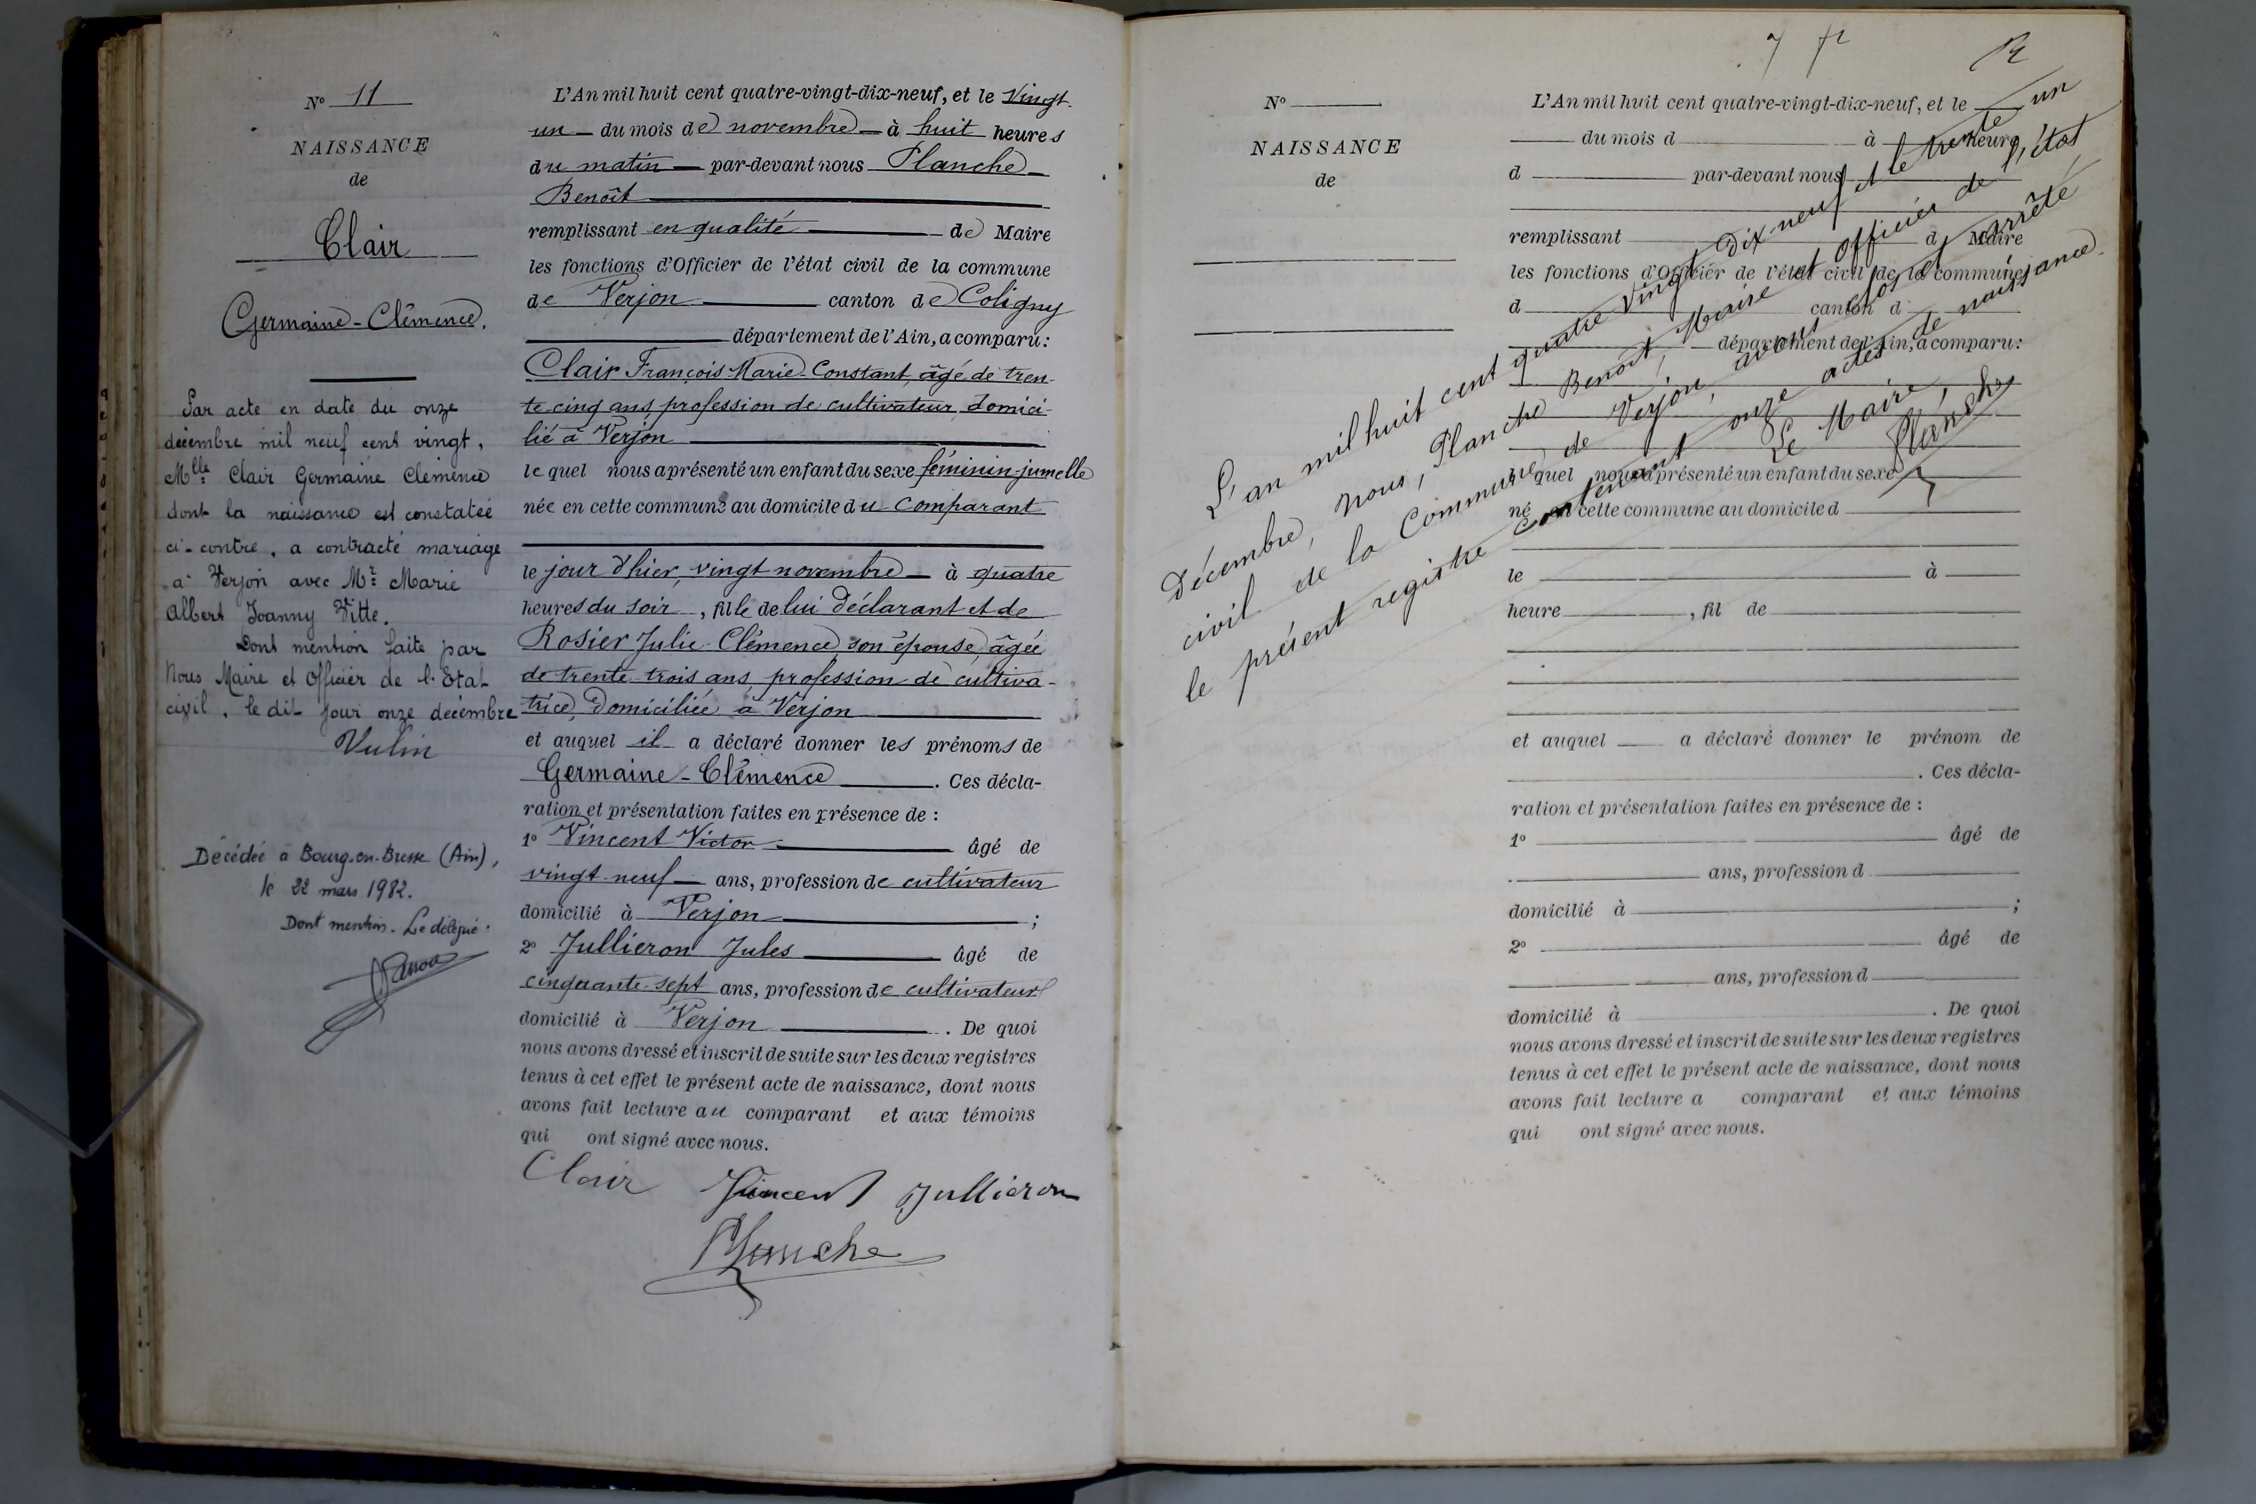 N° 11
NAISSANCE
de
Clair
Germaine-Clémence.
Par acte en date du onze
décembre mil neuf cent vingt,
Mlle Clair Germaine Clémence
dont la naissance est constatée
ci-contre, a contracté mariage
à Verjon avec Mr Marie
Albert Joanny Vitte.
Dont mention faite par
Nous Maire et Officier de l'Etat
civil, le dit jour onze décembre
Vulin
Décédée à Bourg-en-Bresse (Ain),
le 22 mars 1982.
Dont mention. Le délégué.
L'An mil huit cent quatre-vingt-dix-neuf, et le vingt-
un du mois de novembre à huit heures
du matin par-devant nous Planche
Benoît
remplissant en qualité de Maire
les fonctions d'Officier de l'état civil de la commune
de Verjon canton de Coligny
département de l'Ain, a comparu:
Clair François-Marie-Constant, âgé de tren-
te-cinq ans, profession de cultivateur, domici-
lié à Verjon
lequel nous a présenté un enfant du sexe féminin-jumelle
née en cette commune au domicile du comparant
le jour d'hier, vingt novembre à quatre
heures du soir, fille de lui déclarant et de
Rosier Julie-Clémence, son épouse, âgée
de trente-trois ans, profession de cultiva-
trice, domiciliée à Verjon
et auquel il a déclaré donner les prénoms de
Germaine-Clémence. Ces décla-
ration et présentation faites en présence de :
1° Vincent Victor âgé de
vingt-neuf ans, profession de cultivateur
domicilié à Verjon ;
2° Jullieron Jules âgé de
cinquante-sept ans, profession de cultivateur
domicilié à Verjon. De quoi
nous avons dressé et inscrit de suite sur les deux registres
tenus à cet effet le présent acte de naissance, dont nous
avons fait lecture au comparant et aux témoins
qui ont signé avec nous.
Clair Vincent Jullieron
Planche
N°
NAISSANCE
de
L'An mil huit cent quatre-vingt-dix-neuf, et le
du mois d à heure
d par-devant nous
remplissant d Maire
les fonctions d'Officier de l'état civil de la commune
d canton d
département de l'Ain, a comparu:
lequel nous a présenté un enfant du sexe
né en cette commune au domicile d
le à
heure , fil de
et auquel a déclaré donner le prénom de
. Ces décla-
ration et présentation faites en présence de :
1° âgé de
ans, profession d
domicilié à ;
2° âgé de
ans, profession d
domicilié à . De quoi
nous avons dressé et inscrit de suite sur les deux registres
tenus à cet effet le présent acte de naissance, dont nous
avons fait lecture a comparant et aux témoins
qui ont signé avec nous.
L'an mil huit cent quatre vingt dix-neuf et le trente un
Décembre, nous, Planche Benoît, Maire et officier de l'état
civil de la Commune de Verjon, avons clos et arrêté
le présent registre contenant onze actes de naissance.
Le Maire,
Planche